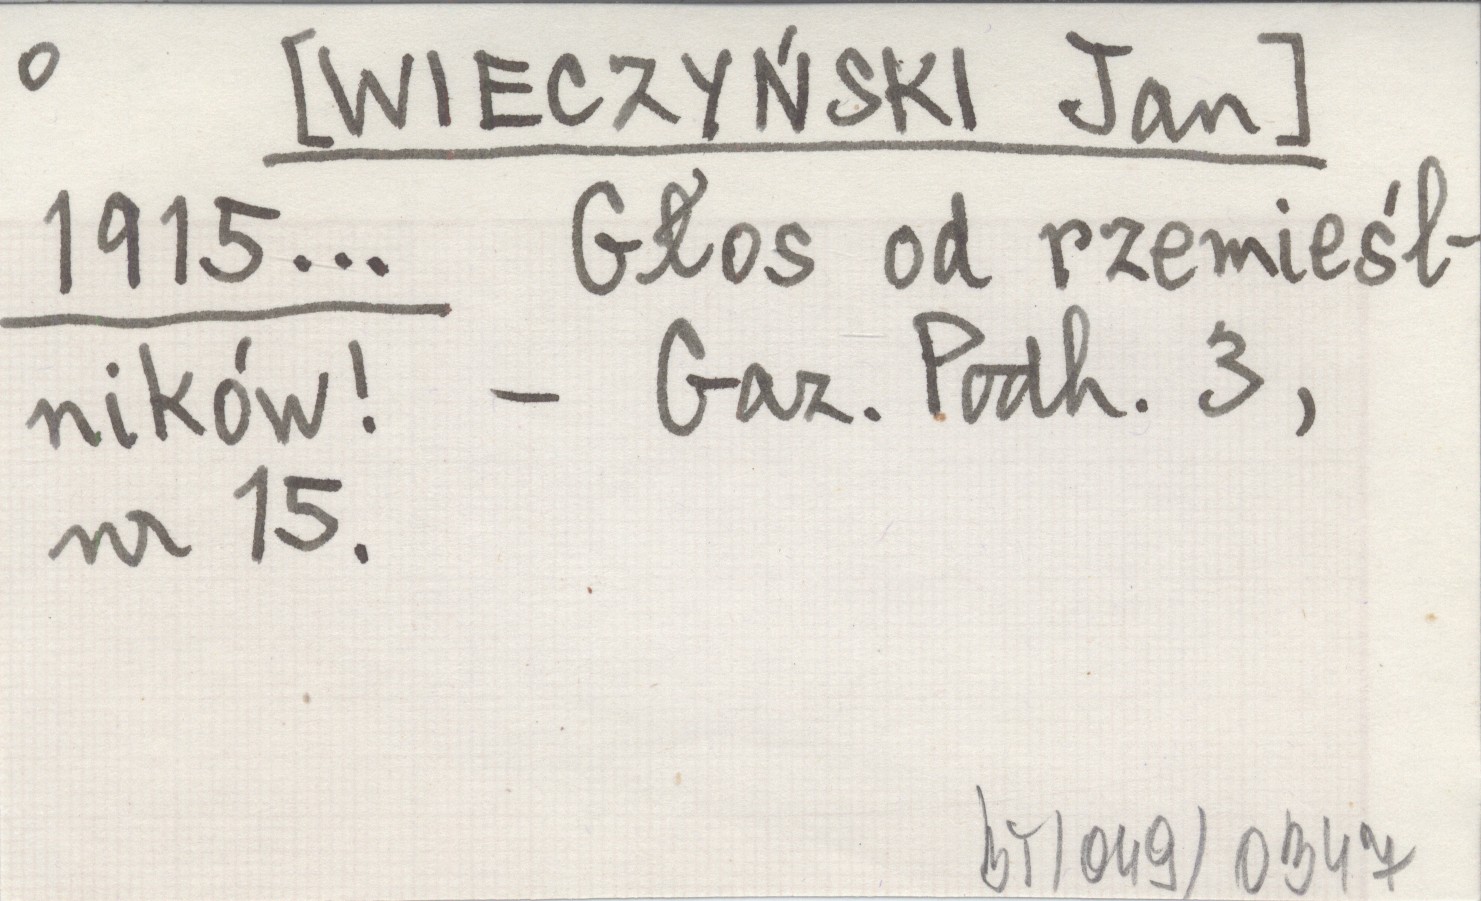 o [WIECZYŃSKI Jan]
1915... Głos od rzemieśl-
ników! - Gaz. Podh. 3,
nr 15.
BT/049/0347